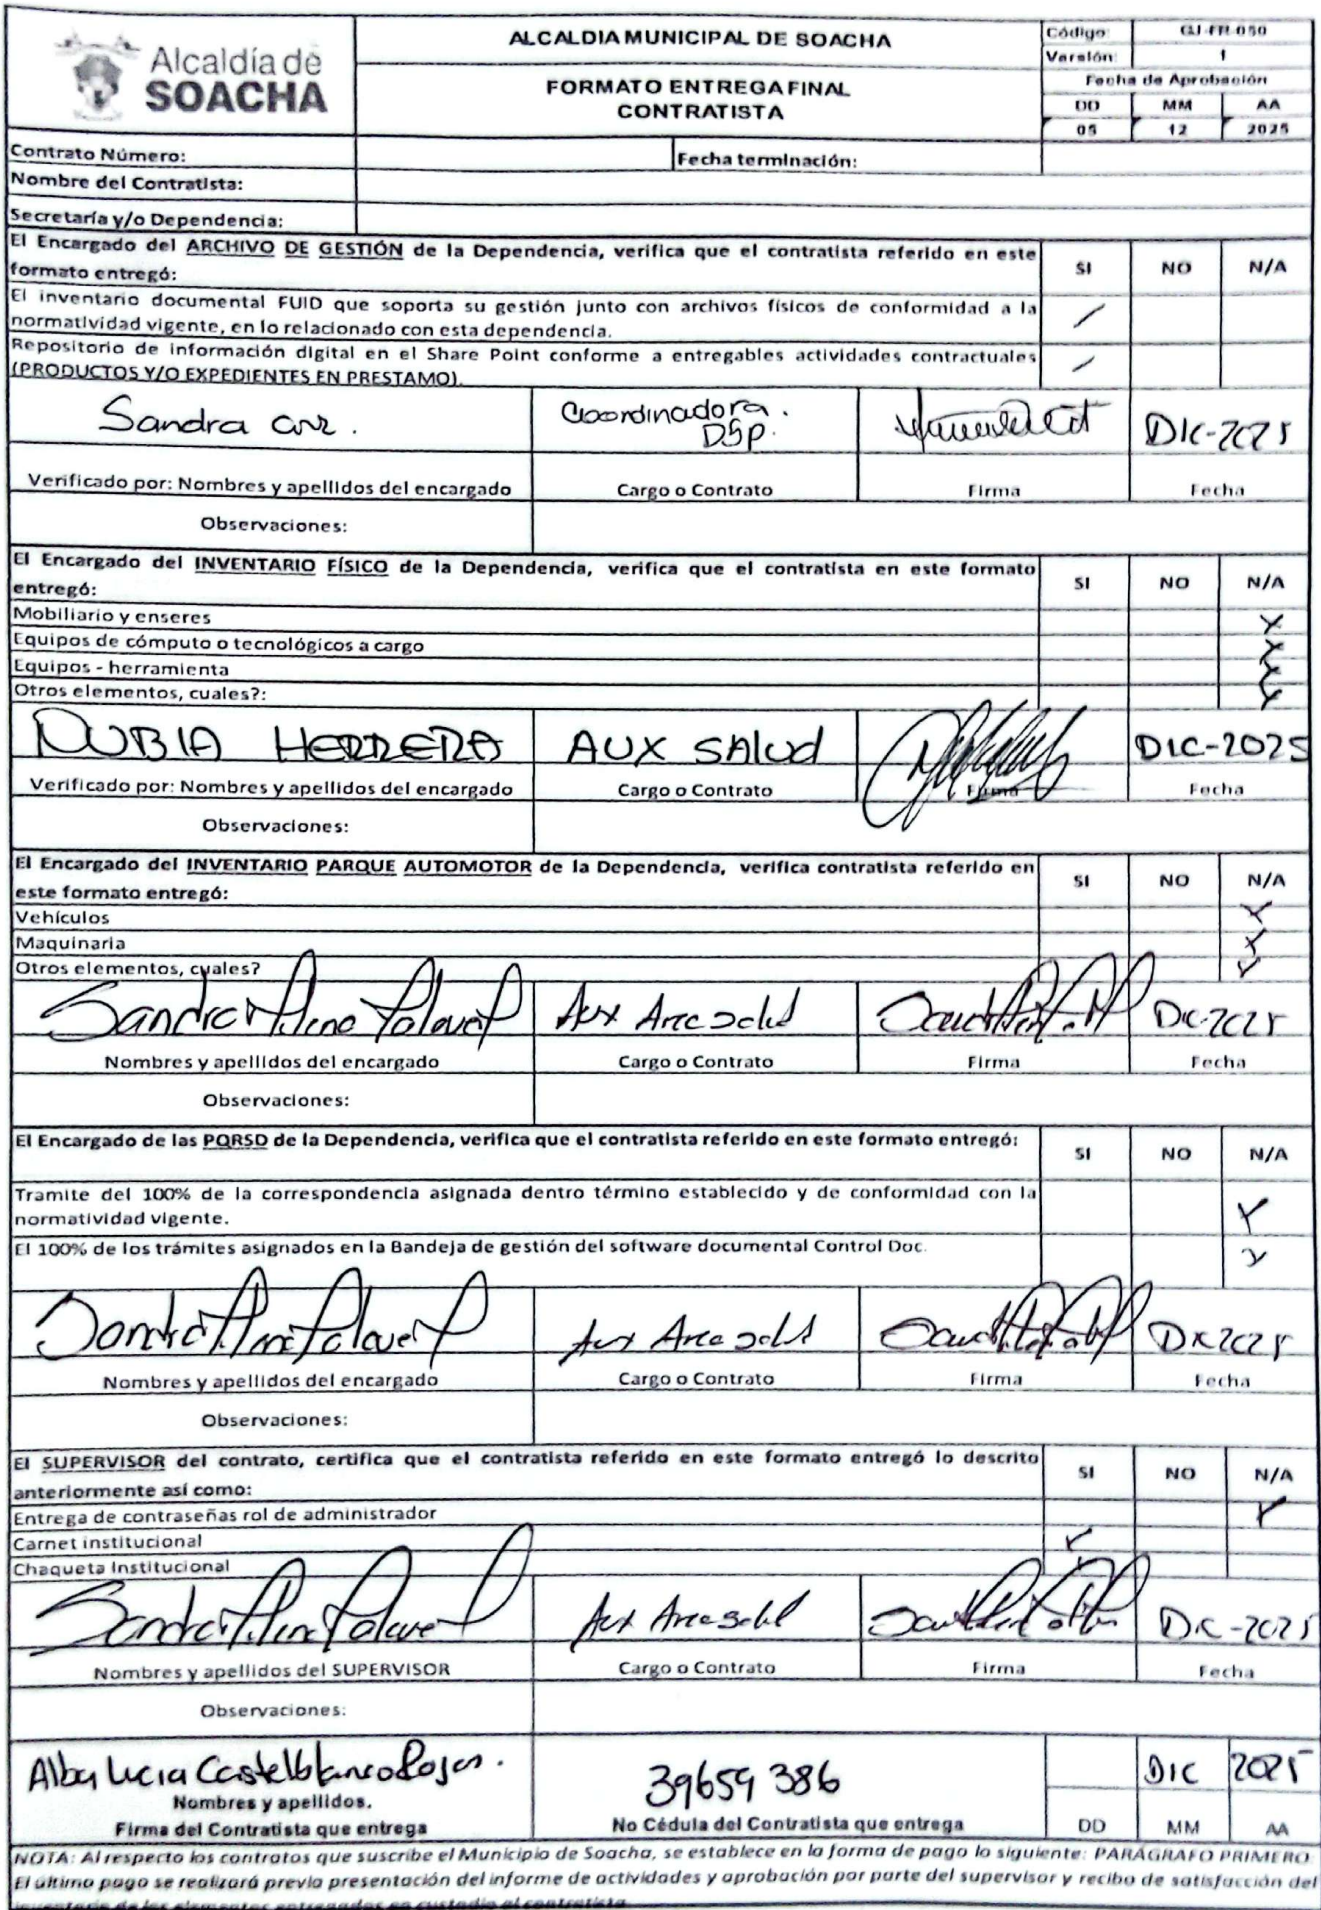 Alcaldía de
SOACHA
ALCALDIA MUNICIPAL DE SOACHA
FORMATO ENTREGA FINAL
CONTRATISTA
Código: GJ-FR-050
Versión: 1
Fecha de Aprobación
DD MM AA
05 12 2025
Contrato Número: Fecha terminación:
Nombre del Contratista:
Secretaría y/o Dependencia:
El Encargado del ARCHIVO DE GESTIÓN de la Dependencia, verifica que el contratista referido en este
formato entregó: SI NO N/A
El inventario documental FUID que soporta su gestión junto con archivos físicos de conformidad a la
normatividad vigente, en lo relacionado con esta dependencia. /
Repositorio de información digital en el Share Point conforme a entregables actividades contractuales
(PRODUCTOS Y/O EXPEDIENTES EN PRESTAMO). /
Sandra Coordinadora. DIC-2025
DSP.
Verificado por: Nombres y apellidos del encargado Cargo o Contrato Firma Fecha
Observaciones:
El Encargado del INVENTARIO FÍSICO de la Dependencia, verifica que el contratista en este formato
entregó: SI NO N/A
Mobiliario y enseres X
Equipos de cómputo o tecnológicos a cargo X
Equipos - herramienta X
Otros elementos, cuales?: X
NUBIA HERRERA AUX SALUD DIC-2025
Verificado por: Nombres y apellidos del encargado Cargo o Contrato Firma Fecha
Observaciones:
El Encargado del INVENTARIO PARQUE AUTOMOTOR de la Dependencia, verifica contratista referido en
este formato entregó: SI NO N/A
Vehículos X
Maquinaria X
Otros elementos, cuales? X
Sandra Milena Aux Area Salud DIC-2025
Nombres y apellidos del encargado Cargo o Contrato Firma Fecha
Observaciones:
El Encargado de las PQRSD de la Dependencia, verifica que el contratista referido en este formato entregó:
SI NO N/A
Tramite del 100% de la correspondencia asignada dentro término establecido y de conformidad con la
normatividad vigente. X
El 100% de los trámites asignados en la Bandeja de gestión del software documental Control Doc. X
Sandra Milena Aux Area Salud DIC 2025
Nombres y apellidos del encargado Cargo o Contrato Firma Fecha
Observaciones:
El SUPERVISOR del contrato, certifica que el contratista referido en este formato entregó lo descrito
anteriormente así como: SI NO N/A
Entrega de contraseñas rol de administrador X
Carnet institucional X
Chaqueta Institucional
Sandra Milena Aux Area Salud DIC-2025
Nombres y apellidos del SUPERVISOR Cargo o Contrato Firma Fecha
Observaciones:
Alba Lucia Castelblanco Rojas. 39659386 DIC 2025
Nombres y apellidos.
Firma del Contratista que entrega No Cédula del Contratista que entrega DD MM AA
NOTA: Al respecto los contratos que suscribe el Municipio de Soacha, se establece en la forma de pago lo siguiente: PARÁGRAFO PRIMERO:
El último pago se realizará previa presentación del informe de actividades y aprobación por parte del supervisor y recibo de satisfacción del
inventario de los elementos entregados en custodia al contratista